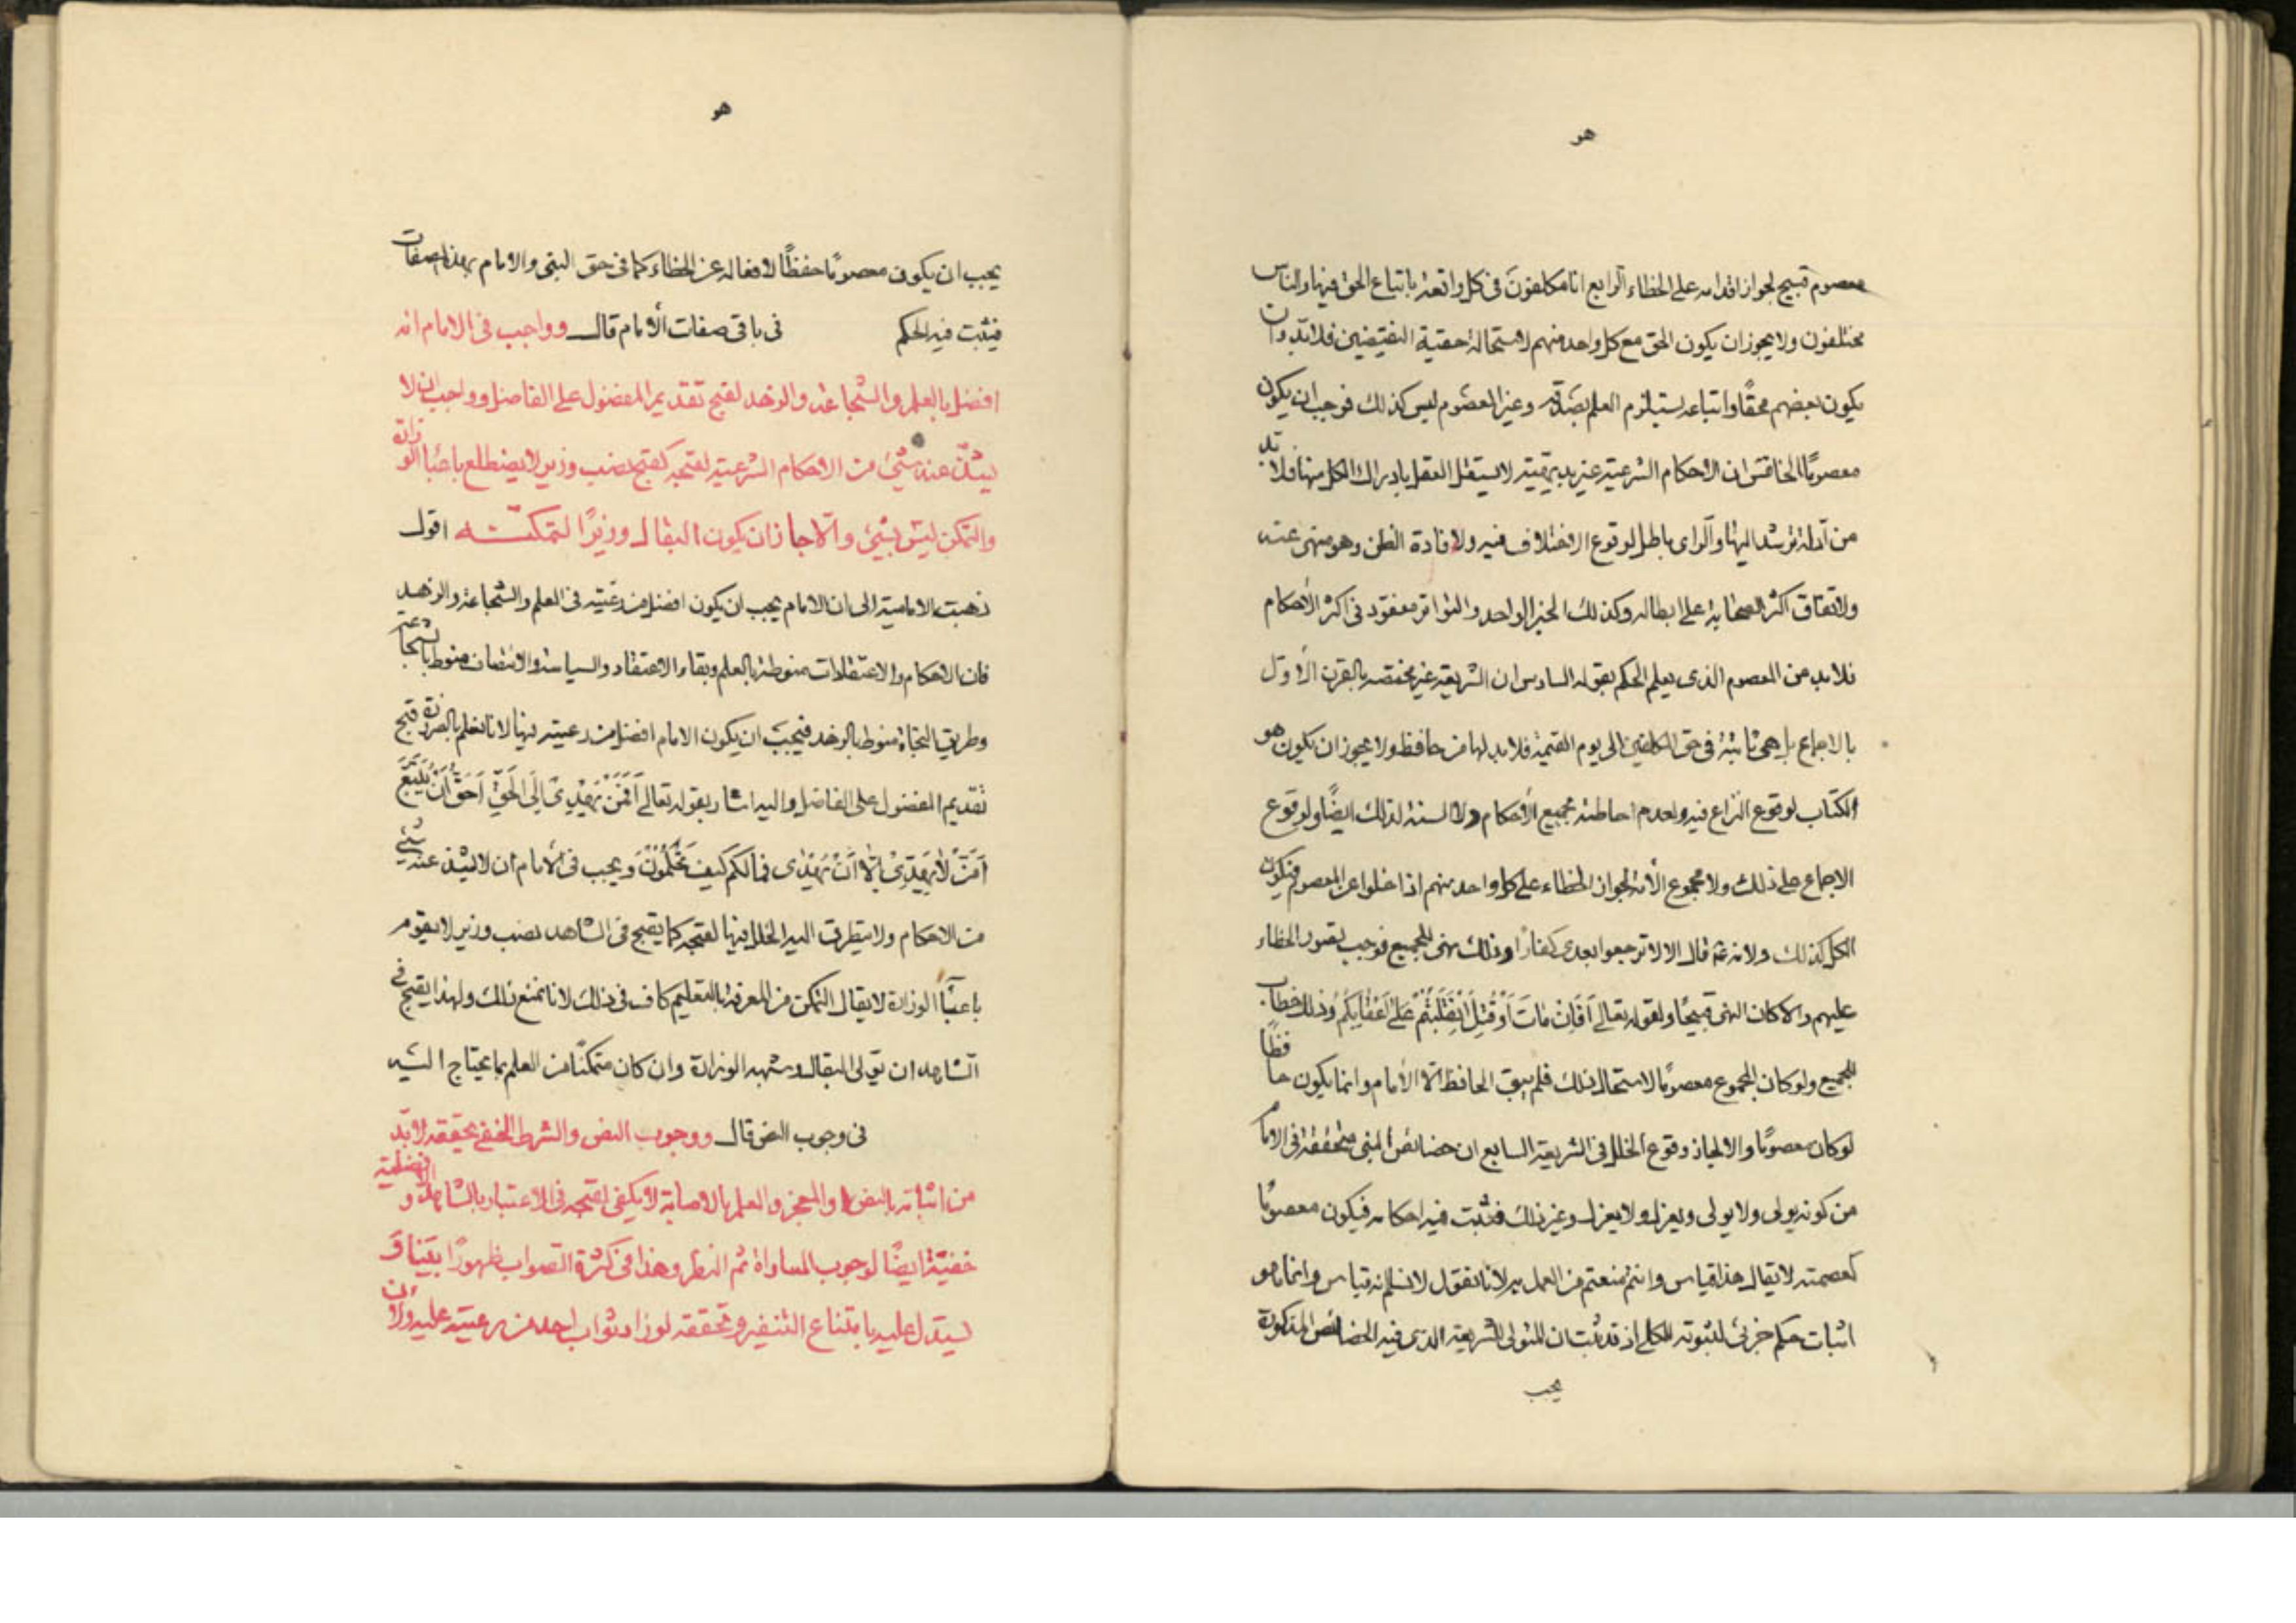 هو
معصوم قبيح لجواز اقدامه على الخطاء الرابع انا مكلفون فى كل واقعة باتباع الحق فيها والناس
مختلفون ولا يجوز ان يكون الحق مع كل واحد منهم لاستحالة حقية النقيضين فلابد وان
يكون بعضهم محقًا واتباعه يستلزم العلم بصدقه وغير المعصوم ليس كذلك فوجب ان يكون
معصومًا الخامس ان الاحكام الشرعية غير بديهية لا يستقل العقل بادراك الكل منها فلا بد
من آدلة ترشد اليها والراى باطل لوقوع الاختلاف فيه ولافادة الظن وهو منهى عنه
ولاتفاق اكثر الصحابة على ابطاله وكذلك الخبر الواحد والتواتر مفقود فى اكثر الأحكام
فلابد من المعصوم الذى يعلم الحكم بقوله السادس ان الشريعة غير مختصه بالقرن الأول
بالاجماع بل هى ثابتة فى حق المكلفين الى يوم القيمة فلا بد لها من حافظ ولا يجوز ان يكون هو
الكتاب لوقوع النزاع فيه ولعدم احاطته بجميع الأحكام ولا السنة لذلك ايضًا ولوقوع
الاجماع على ذلك ولا مجموع الأمة لجواز الخطاء على كل واحد منهم اذا خلوا عن المعصوم فيكون
الكل كذلك ولانه عم قال الا لا ترجعوا بعدى كفارًا وذلك نهى للجميع فوجب تصور الخطاء
عليهم والا كان النهى قبيحًا ولقوله تعالى أَفَإِن مَاتَ اَوْ قُتِلَ انْقَلَبْتُمْ عَلٰى اَعْقَابِكُمْ وذلك خطاب
للجميع ولو كان المجموع معصومًا لاستحال ذلك فلم يبق الحافظ الا الأمام وانما يكون حافظًا
لو كان معصومًا والا لجاز وقوع الخلل فى الشريعة السابع ان خصائص النبى متحققة فى الامام
من كونه يولى ولا يولى ويعزل ولا يعزل وغير ذلك فثبت فيه احكامه فيكون معصومًا
كعصمته لا يقال هذا قياس وانتم منعتم من العمل به لانا نقول لا نسلم انه قياس وانما هو
اثبات حكم جزئى لثبوته للكلى اذ قد ثبت ان المتولى للشريعة الذى فيه الخصائص المذكورة
يجب
هو
يجب ان يكون معصومًا حفظًا لافعاله عن الخطاء كما فى حق النبى والامام بهذه الصفات
فيثبت فيه الحكم فى باقى صفات الأمام قال وواجب فى الامام انه
افضل بالعلم والشجاعة والزهد لقبح تقديم المفضول على الفاضل وواجب ان لا
يشذ عنه شئ من الاحكام الشرعية لقبحه كقبح نصب وزير لا يضطلع باعباء الوزارة
والتمكن ليس بشئ والا جاز ان يكون البقال وزيرًا لتمكنه اقول
ذهبت الامامية الى ان الامام يجب ان يكون افضل من رعيته فى العلم والشجاعة والزهد
فان الاحكام والاعتقادات منوطة بالعلم وبقاء الاعتقاد والسياسة والانتصاف منوط بالشجاعة
وطريق النجاة منوط بالزهد فيجب ان يكون الامام افضل من رعيته فيها لانا نعلم بالضرورة قبح
تقديم المفضول على الفاضل واليه اشار بقوله تعالى أَفَمَنْ يَهْدِى اِلَى الْحَقِّ اَحَقُّ اَنْ يُتَّبَعَ
اَمَّنْ لَا يَهِدِّى اِلَّا اَنْ يُهْدٰى فمالكم كيف تَحْكُمُونَ ويجب فى الأمام ان لا يشذ عنه شئ
من الاحكام ولا يتطرق اليه الخلل فيها لقبحه كما يقبح فى الشاهد نصب وزير لا يقوم
باعباء الوزارة لا يقال التمكن من المعرفة بالتعليم كاف فى ذلك لانا نمنع ذلك ولهذا يقبح فى
الشاهد ان يتولى البقال وشبهه الوزارة وان كان متمكنًا من العلم بما يحتاج اليه
فى وجوب النص قال ووجوب النص والشرط الخفى يحققه لابد
من اثباته بالنص او المعجز والعلم بالاصابة لا يكفى لقبحه فى الاعتبار بالشاهد والافضلية
خفية ايضًا لوجوب المساواة ثم النظر وهذا فى كثرة الثواب ظهورًا بينا و
يستدل عليه بامتناع التنفير وتحققه لو زاد ثواب احد من رعيته عليه ولان